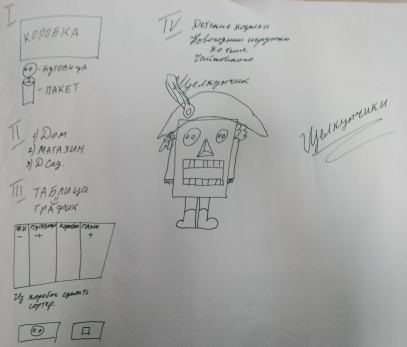 I
КОРОБКА
- ПУГОВИЦА
- ПАКЕТ
II
1) Дом
2) МАГАЗИН
3) Д.Сад.
III ТАБЛИЦА
ГРАФИК
ПУГОВИЦ КОРОБК ПАКЕ
- + +
Из коробок сделать
сортер.
IV Детские поделки
Новогодние игрушки
по теме
Чайковского
Щелкунчик
Щелкунчики